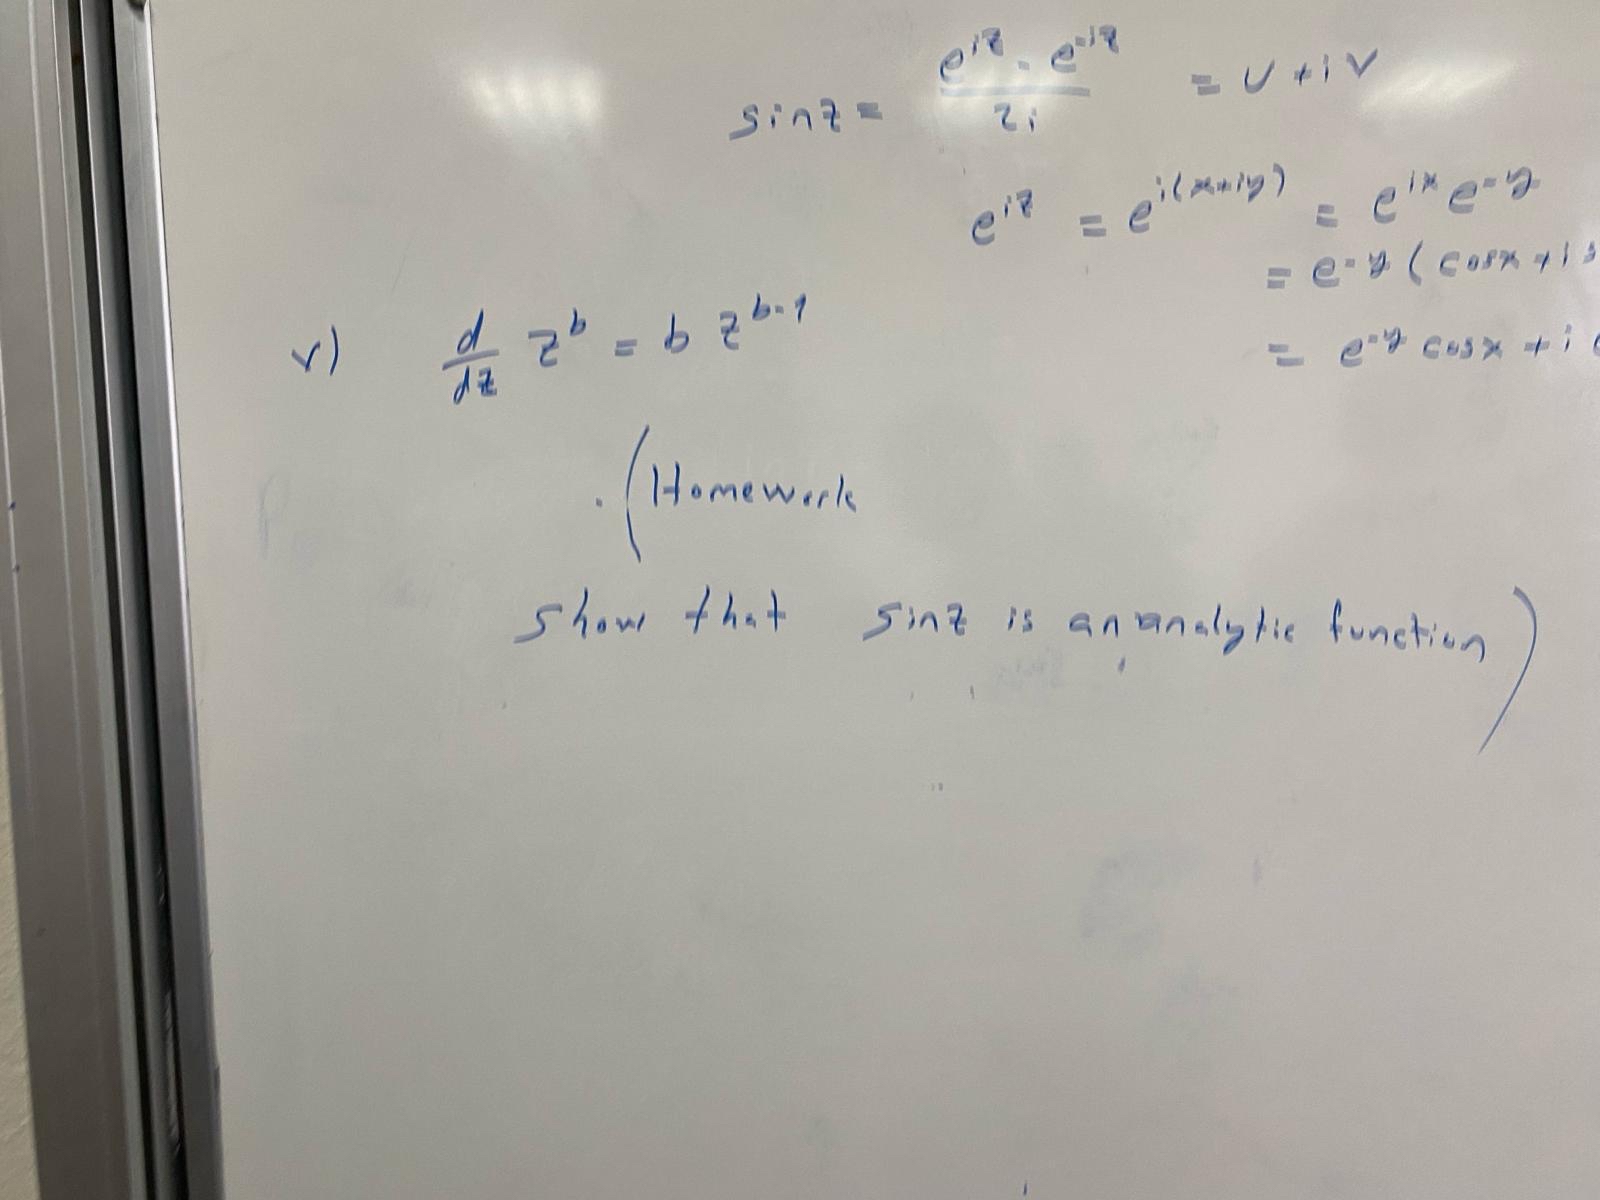 sinz = (e^{iz} - e^{-iz}) / 2i = U + iV
e^{iz} = e^{i(x+iy)} = e^{ix} e^{-y}
= e^{-y} (cosx + i s
v) d/dz z^b = b z^{b-1}
= e^{-y} cosx + i e
(Homework
show that sinz is an analytic function)